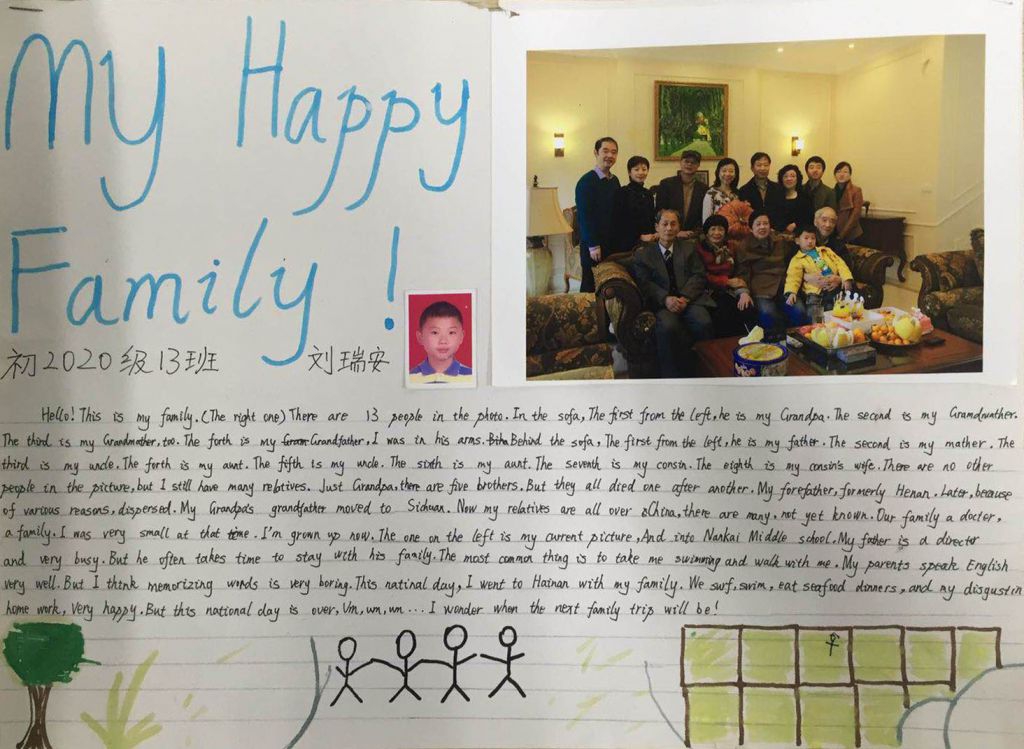 My Happy
Family !
初2020级13班 刘瑞安
Hello! This is my family. (The right one) There are 13 people in the photo. In the sofa, The first from the left, he is my Grandpa. The second is my Gramdmunther.
The third is my Grandmother, too. The forth is my Gram Grandfather, I was in his arms. Biha Behind the sofa, The first from the left, he is my father. The second is my mather. The
third is my uncle. The forth is my aunt. The fifth is my uncle. The sixth is my aunt. The seventh is my consin. The eighth is my consin's wife. There are no other
people in the picture, but I still have many reletives. Just Grandpa, there are five brothers. But they all died one after another. My forefather, formerly Henan. Later, because
of various reasons, dispersed. My Grandpa's grandfather moved to Sichuan. Now my relatives are all over China, there are many, not yet known. Our family a doctor,
a family. I was very small at that time. I'm grown up now. The one on the left is my current picture, And into Nankai Middle school. My father is a director
and very busy. But he often takes time to stay with his family. The most common thing is to take me swimming and walk with me. My parents speak English
very well. But I think memorizing words is very boring. This natinal day, I went to Hainan with my family. We surf, swim, eat seafood dinners, and my disgustin
home work, Very happy. But this national day is over, Um, um, um ... I wonder when the next family trip will be!